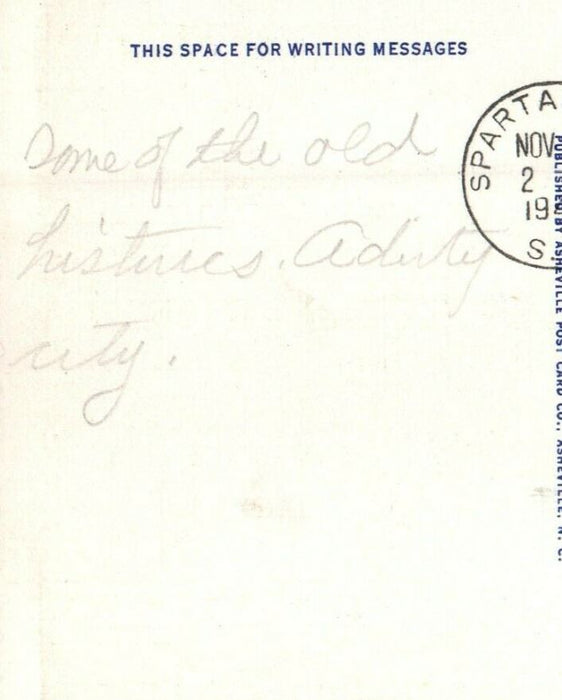 THIS SPACE FOR WRITING MESSAGES
Some of the old
histories. A dirty
city.
SPARTA
NOV
2
19
S.
PUBLISHED BY ASHEVILLE POST CARD CO., ASHEVILLE, N. C.